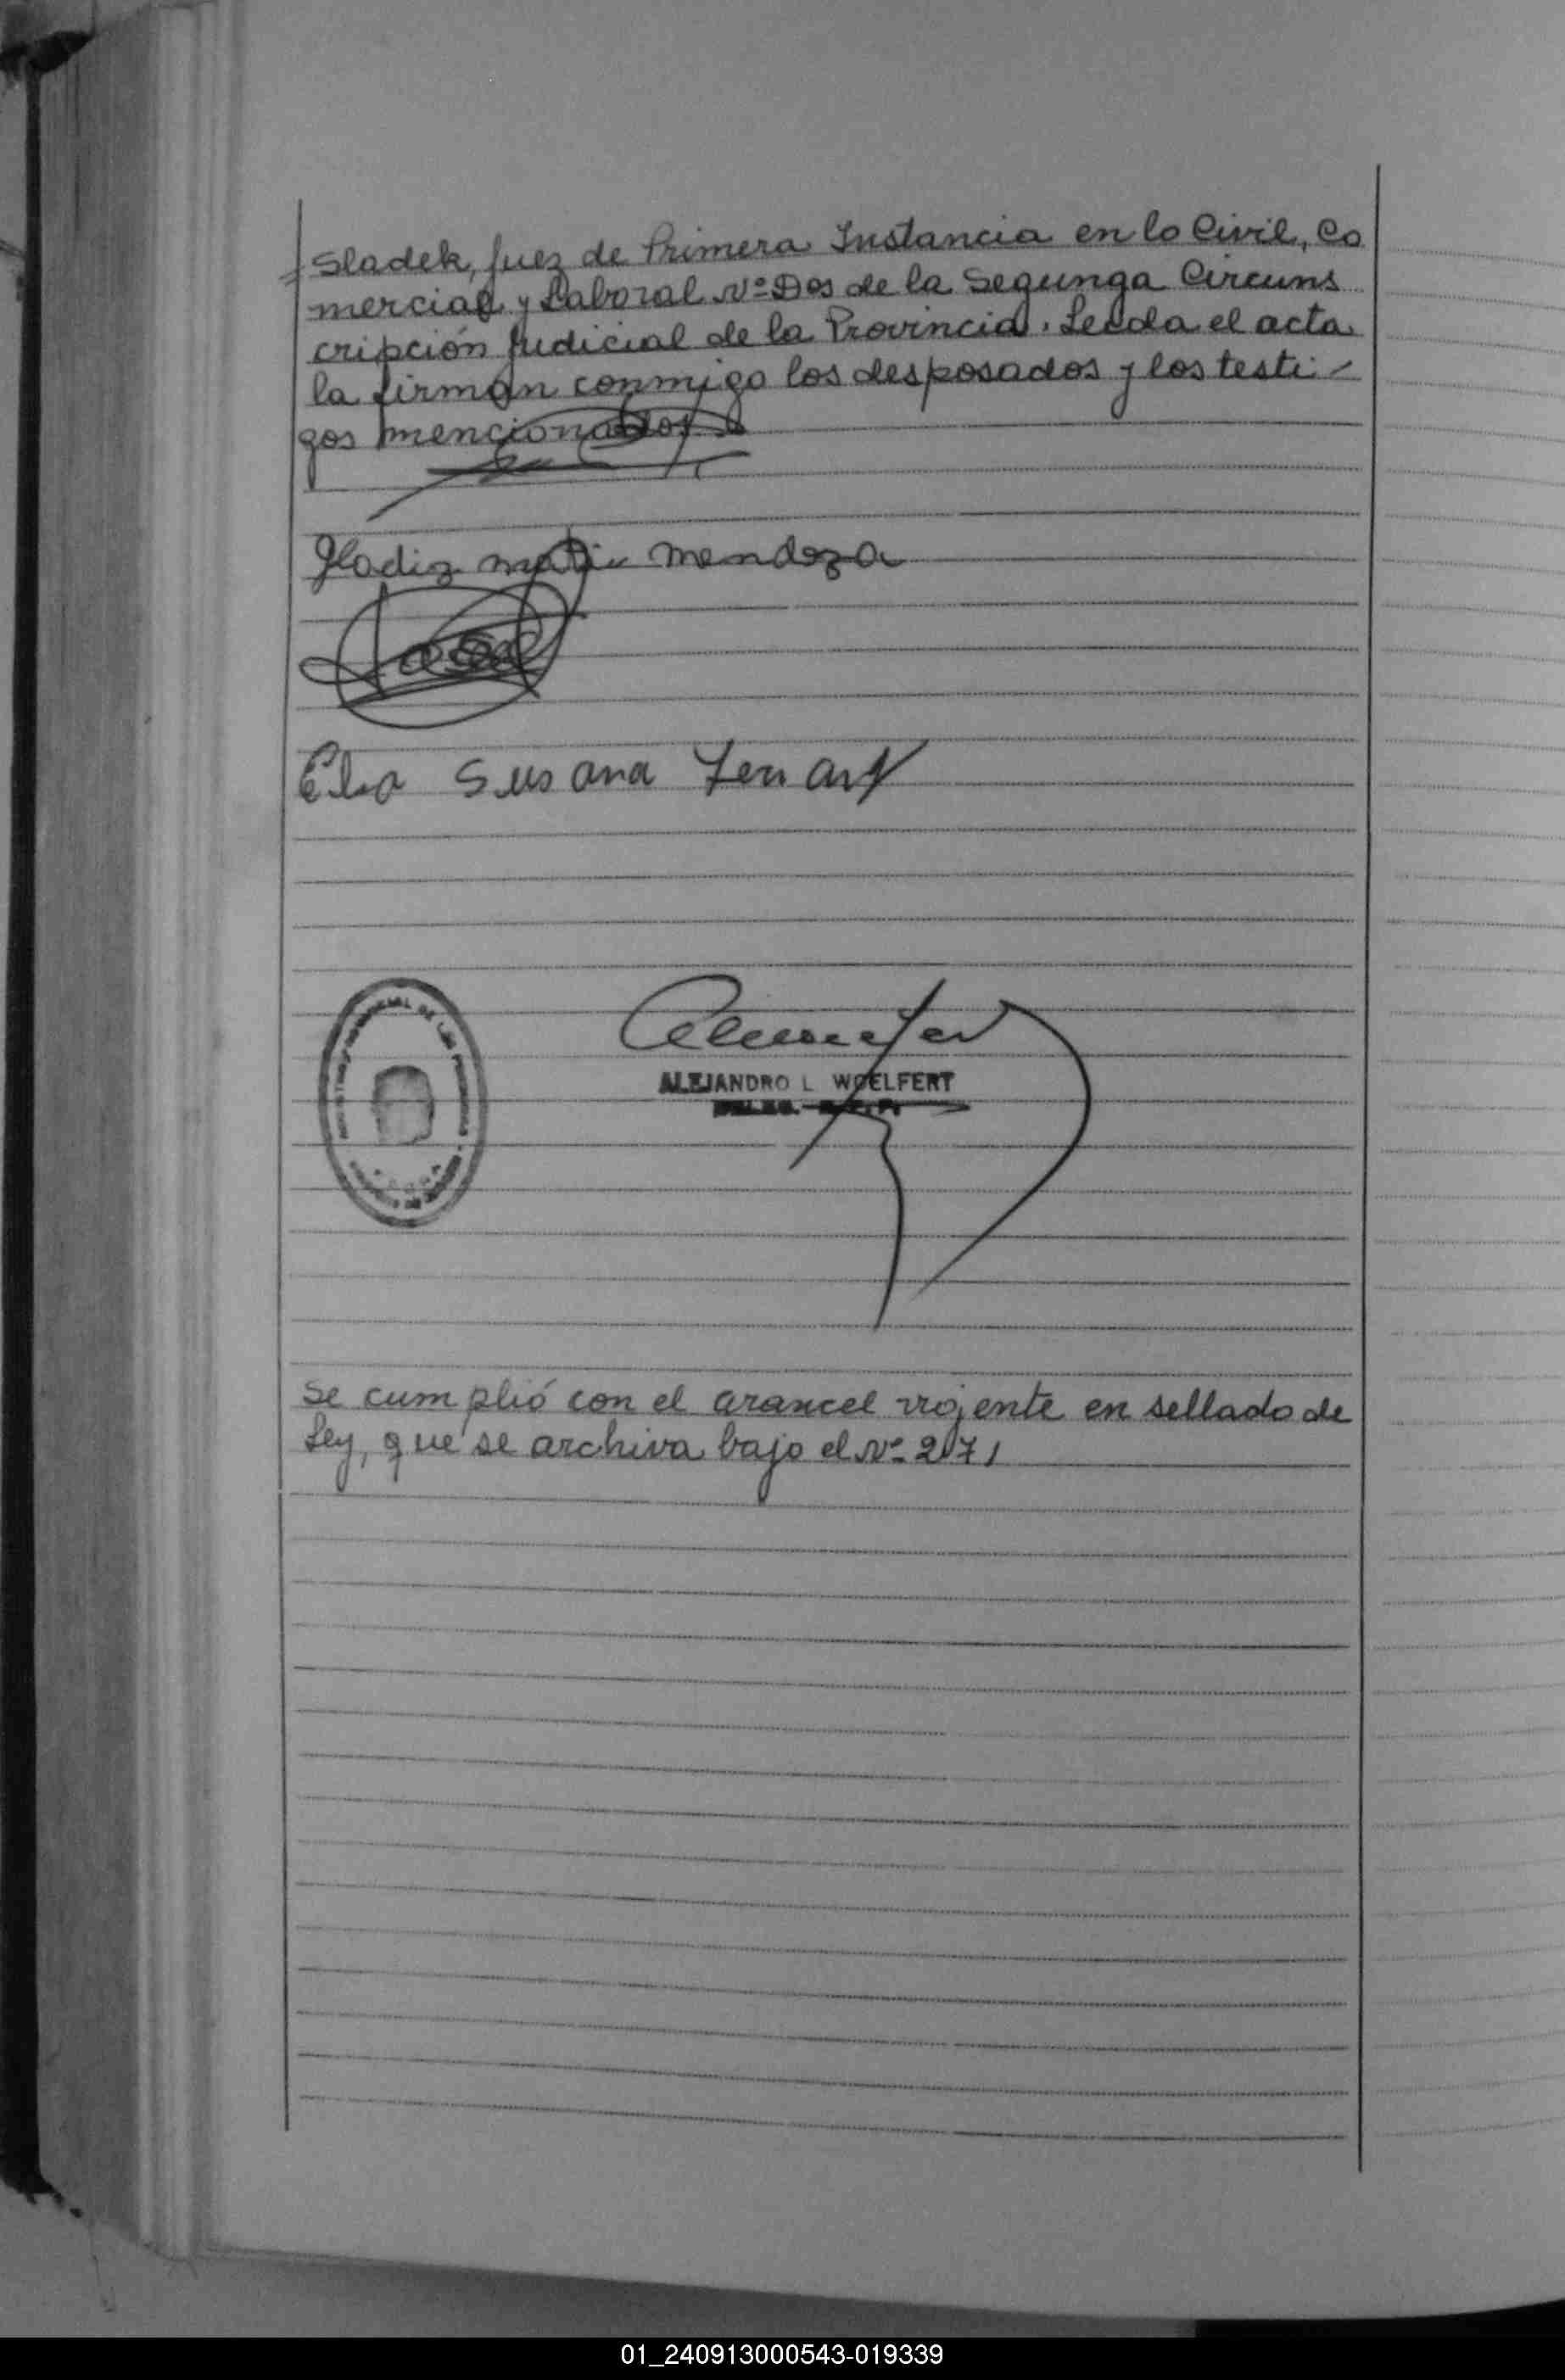 Sladek, Juez de Primera Instancia en lo Civil, Co
mercial y Laboral Nº Dos de la Segunga Circuns
cripción Judicial de la Provincia. Leída el acta
la firman conmigo los desposados y los testi-
gos mencionados
Gladiz Mendoza
Elsa Susana
ALEJANDRO L WOELFERT
Se cumplió con el arancel vigente en sellado de
Ley, que se archiva bajo el Nº 271
01_240913000543-019339